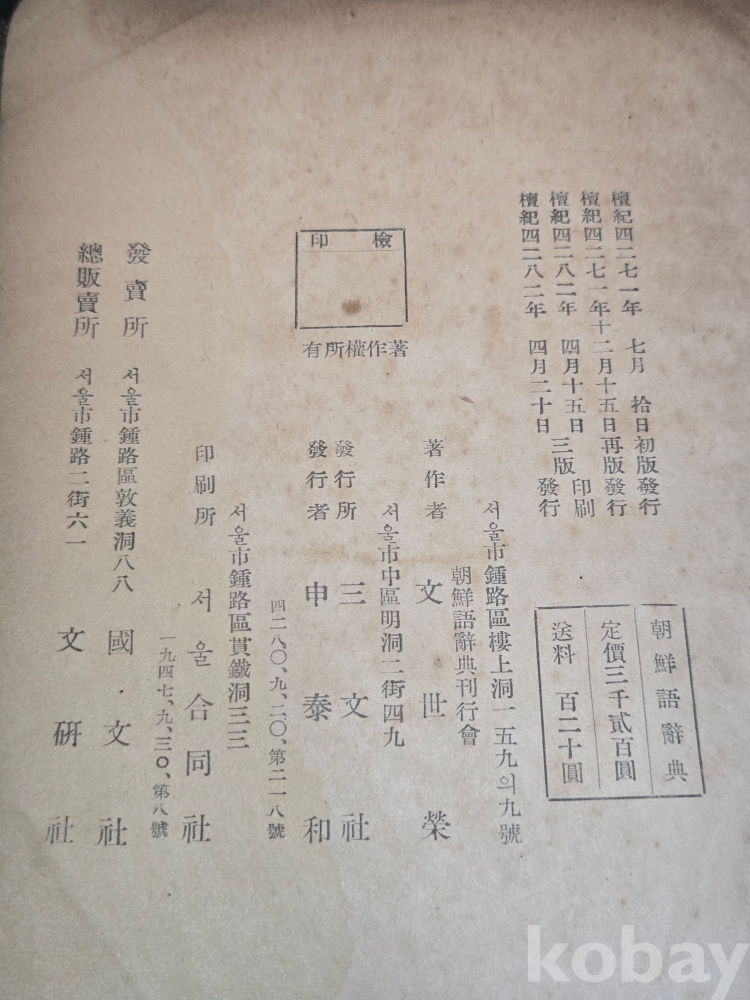 檀紀四二七一年 七月 拾日初版發行
檀紀四二七一年十二月十五日再版發行
檀紀四二八二年 四月十五日 三版 印刷
檀紀四二八二年 四月二十日 發行
朝鮮語辭典
定價三千貳百圓
送料 百二十圓
檢印
著作權所有
서울市鍾路區樓上洞一五九의九號
朝鮮語辭典刊行會
著作者 文世榮
서울市中區明洞二街四九
發行所 三文社
發行者 申泰和
四二八〇、九、二〇、第二一八號
서울市鍾路區貫鐵洞三三
印刷所 서울合同社
一九四七、九、三〇、第八號
發賣所 서울市鍾路區敦義洞八八 國文社
總販賣所 서울市鍾路二街六一 文硏社
kobay